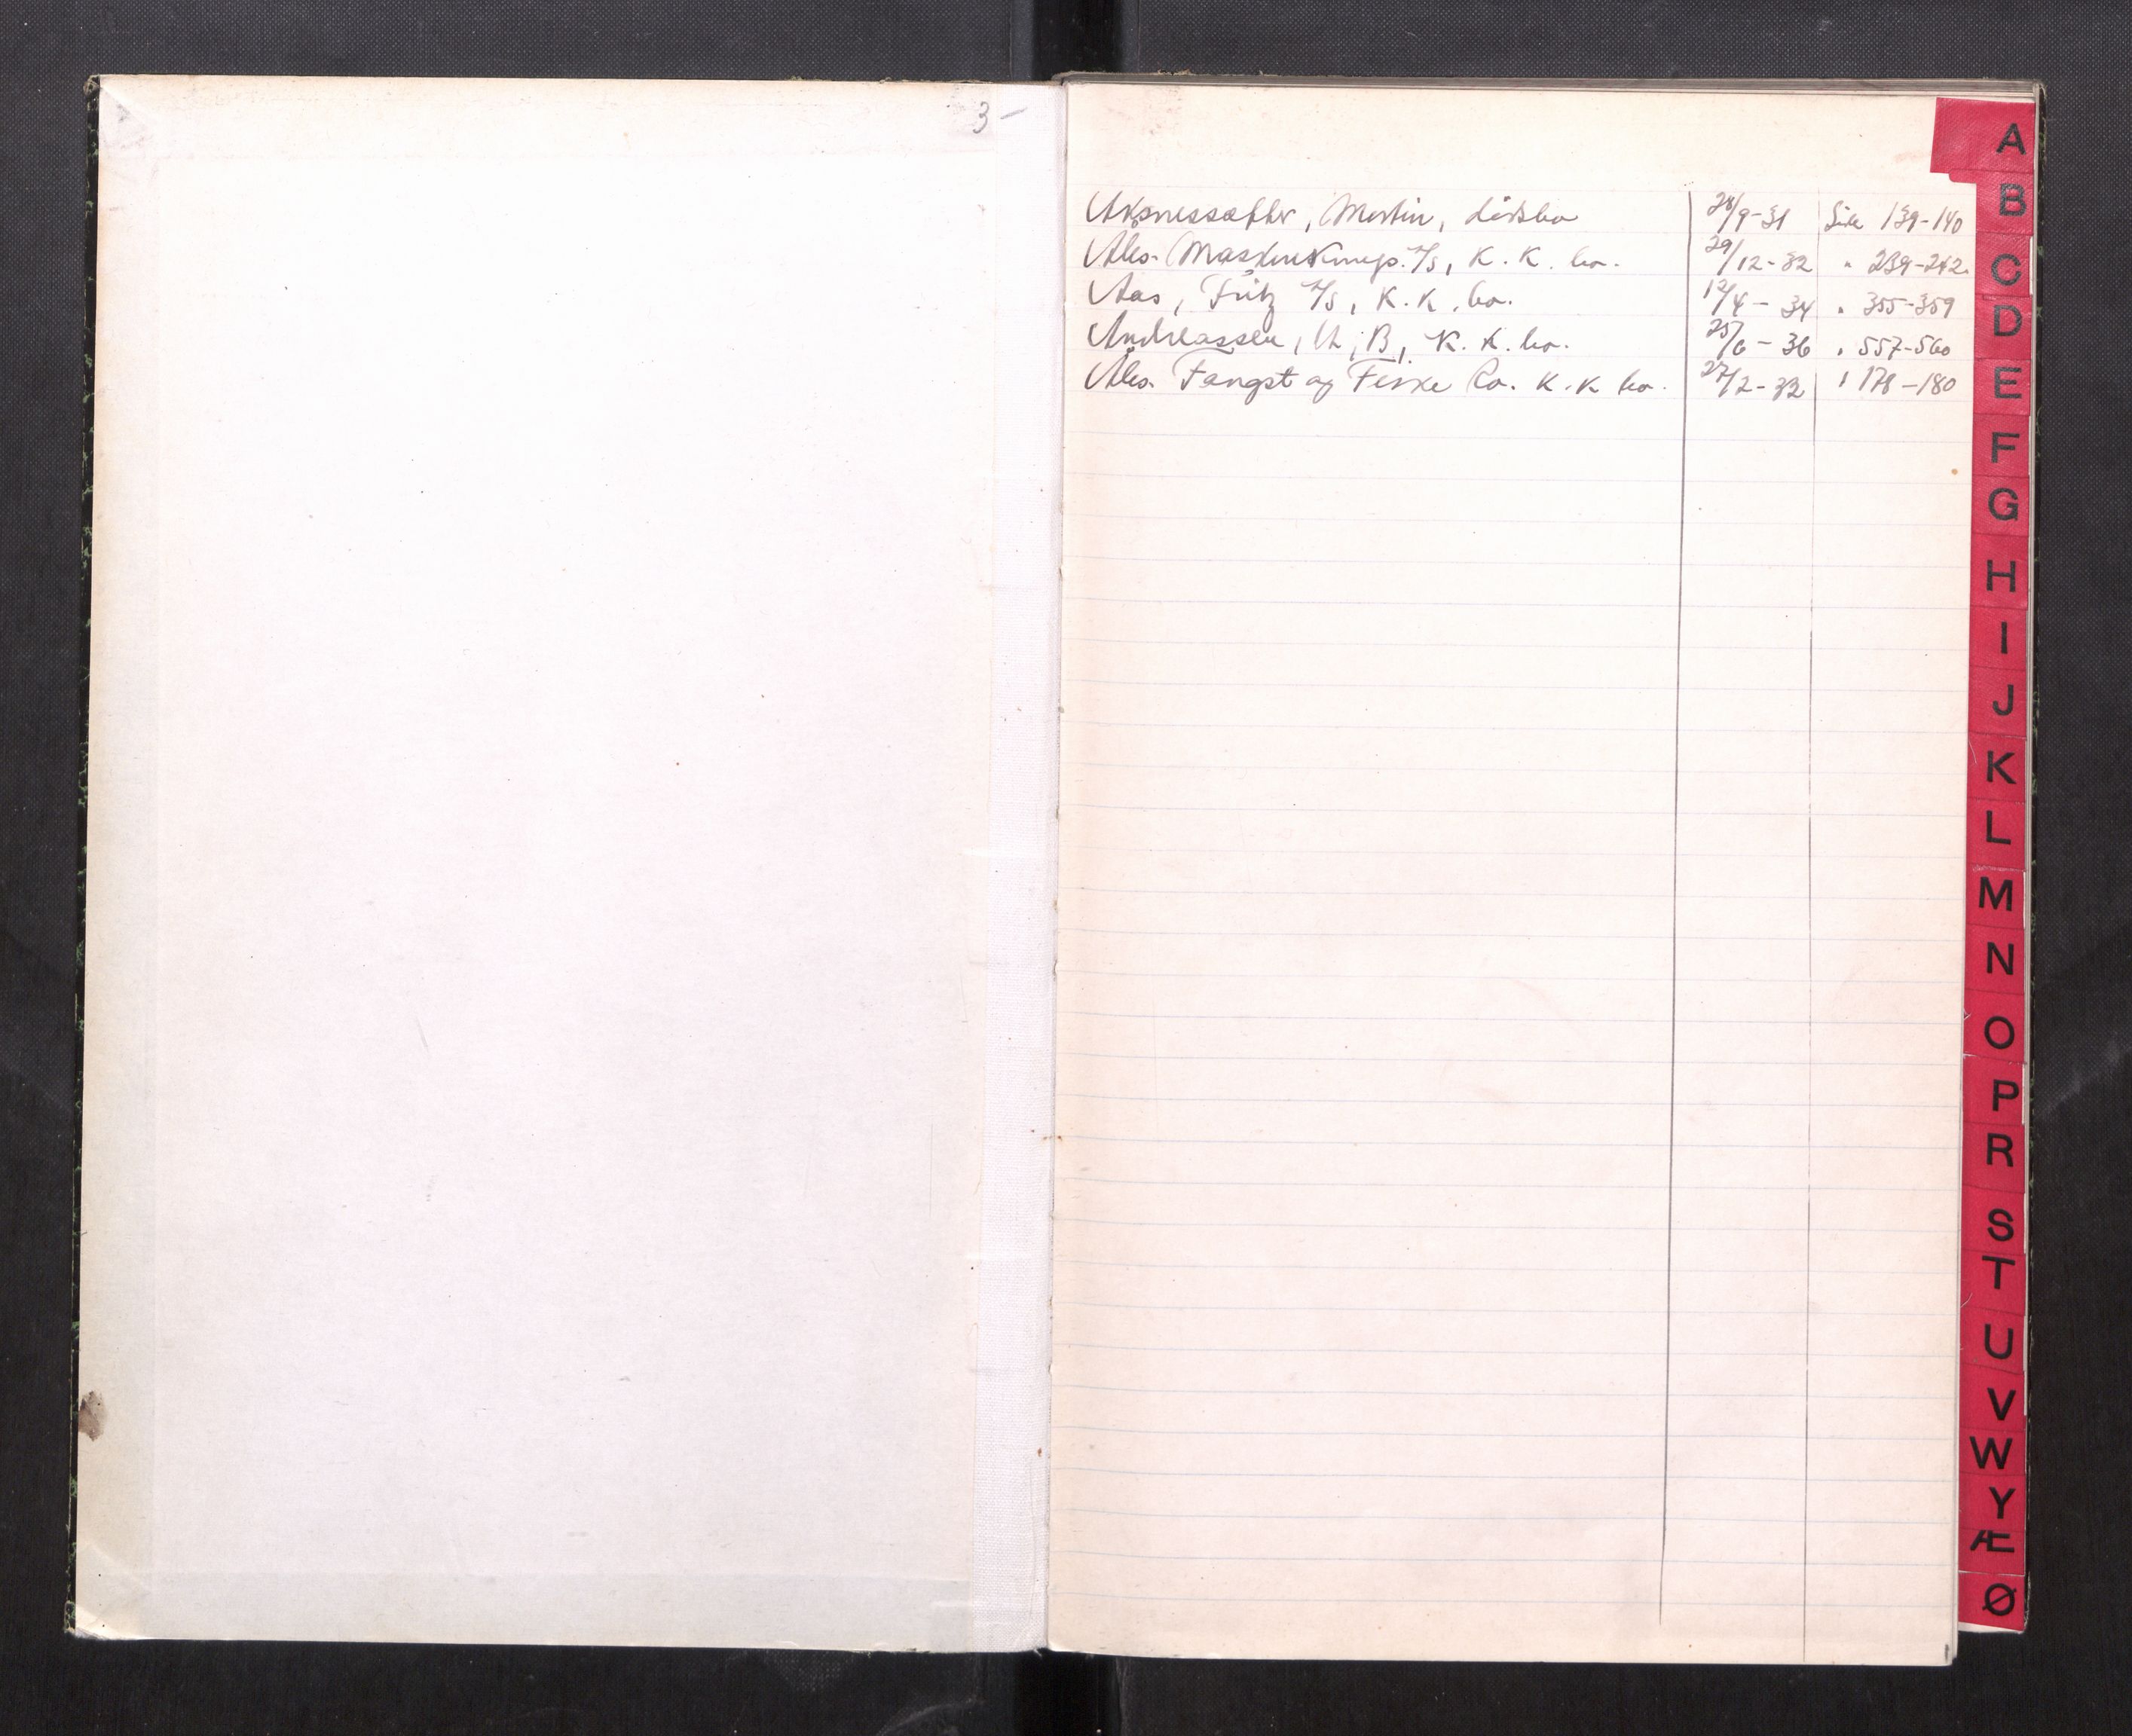 3-
Aksnessæther, Martin, dødsbo 28/9-31 Side 139-140
Åles. Maskinkomp. A/S, K. K. bo. 29/12-32 " 239-242.
Aas, Fritz A/S, K. K. bo. 12/4-34 " 355-359
Andreassen, A. B., K. K. bo. 25/6-36 " 557-560
Åles. Fangst og Fiske Co. K. K bo. 27/2-32 " 178-180
A
B
C
D
E
F
G
H
I
J
K
L
M
N
O
P
R
S
T
U
V
W
Y
Æ
Ø